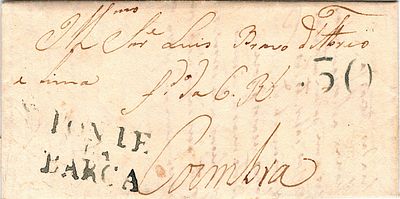 Illmo Snr Luis Bravo d'Abreu
e Lima fo da C. R.
30
PONTE
DA
BARCA
Coimbra